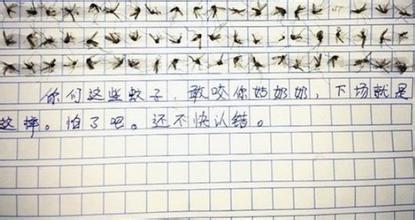 你们这些蚊子，敢咬你姑奶奶，下场就是
这样。怕了吧。还不快认结。